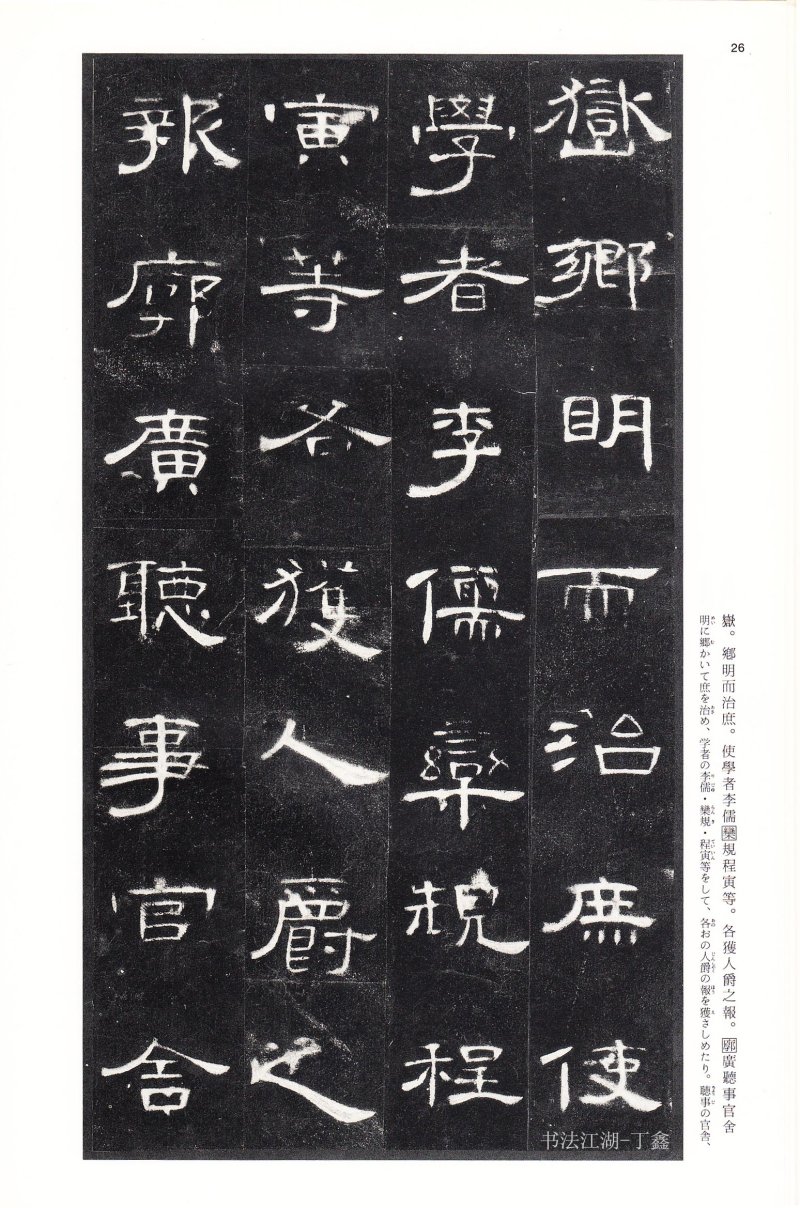 26
嶽鄉明而治庶使
學者李儒欒規程
寅等各獲人爵之
報廓廣聽事官舍
嶽。鄉明而治庶。使學者李儒欒規程寅等。各獲人爵之報。廓廣聽事官舍
明に鄉かいて庶を治め、学者の李儒・欒規・程寅等をして、各おの人爵の報を獲さしめたり。聽事の官舍、
书法江湖-丁鑫